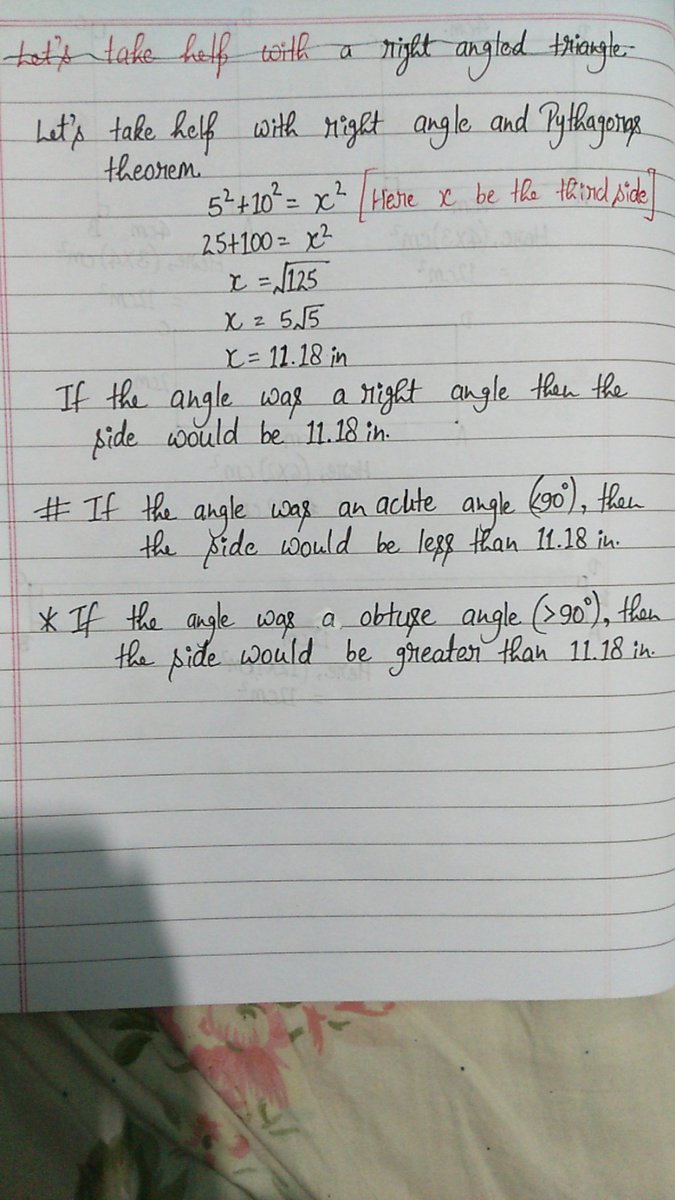 Let's take help with a right angled triangle.
Let's take help with right angle and Pythagoras
theorem.
5²+10² = x² [Here x be the third side]
25+100 = x²
x = √125
x = 5√5
x = 11.18 in
If the angle was a right angle then the
side would be 11.18 in.
# If the angle was an acute angle (<90°), then
the side would be less than 11.18 in.
* If the angle was a obtuse angle (>90°), then
the side would be greater than 11.18 in.